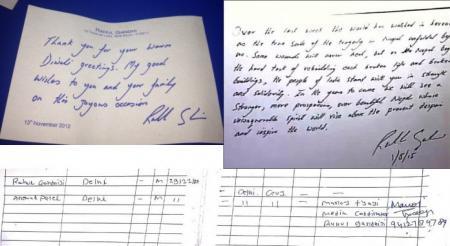 RAHUL GANDHI
Thank you for your warm
Diwali greetings. My good
wishes to you and your family
on this joyous occasion
13th November 2012
Over the last week the world has watched in horror
as the true scale of the tragedy in Nepal unfolded by
us. Some wounds will never heal, but as the Nepal begins
the hard task of rebuilding each broken life and broken
buildings, the people of India stand with you in strength
and solidarity. In the years to come we will see a
stronger, more prosperous, ever beautiful Nepal whose
unconquerable spirit will rise above the present despair
and inspire the world.
1/5/15
Rahul Gandhi Delhi - M
Ahmad Patel Delhi - M 11
- Delhi Cong - -
- 11 11 -
Media Coordinator